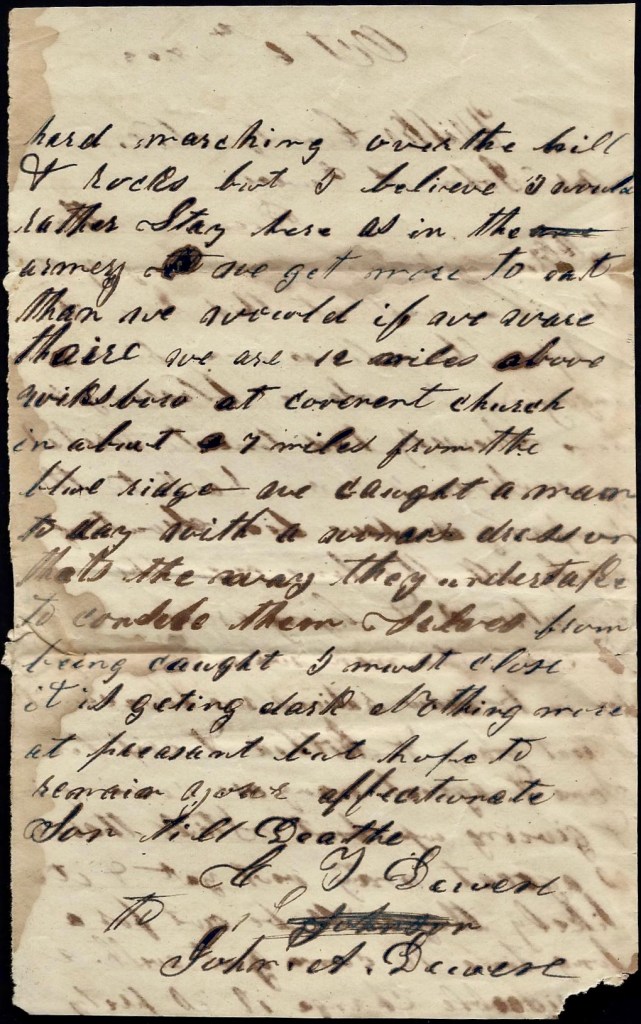 hard marching over the hill
& rocks but I believe I would
rather Stay here as in the
armey we get more to eat
than we would if we ware
thaire we are 12 miles above
wilksbow at covenent church
in about 7 miles from the
blue ridge we caught a man
to day with a womans dress on
thats the way they undertake
to condele them Selves from
being caught I must close
it is geting dark Nothing more
at preasant but hope to
remain yours affectunate
Son till Deathe
C F Dewese
to Johnson
John A. Dewese